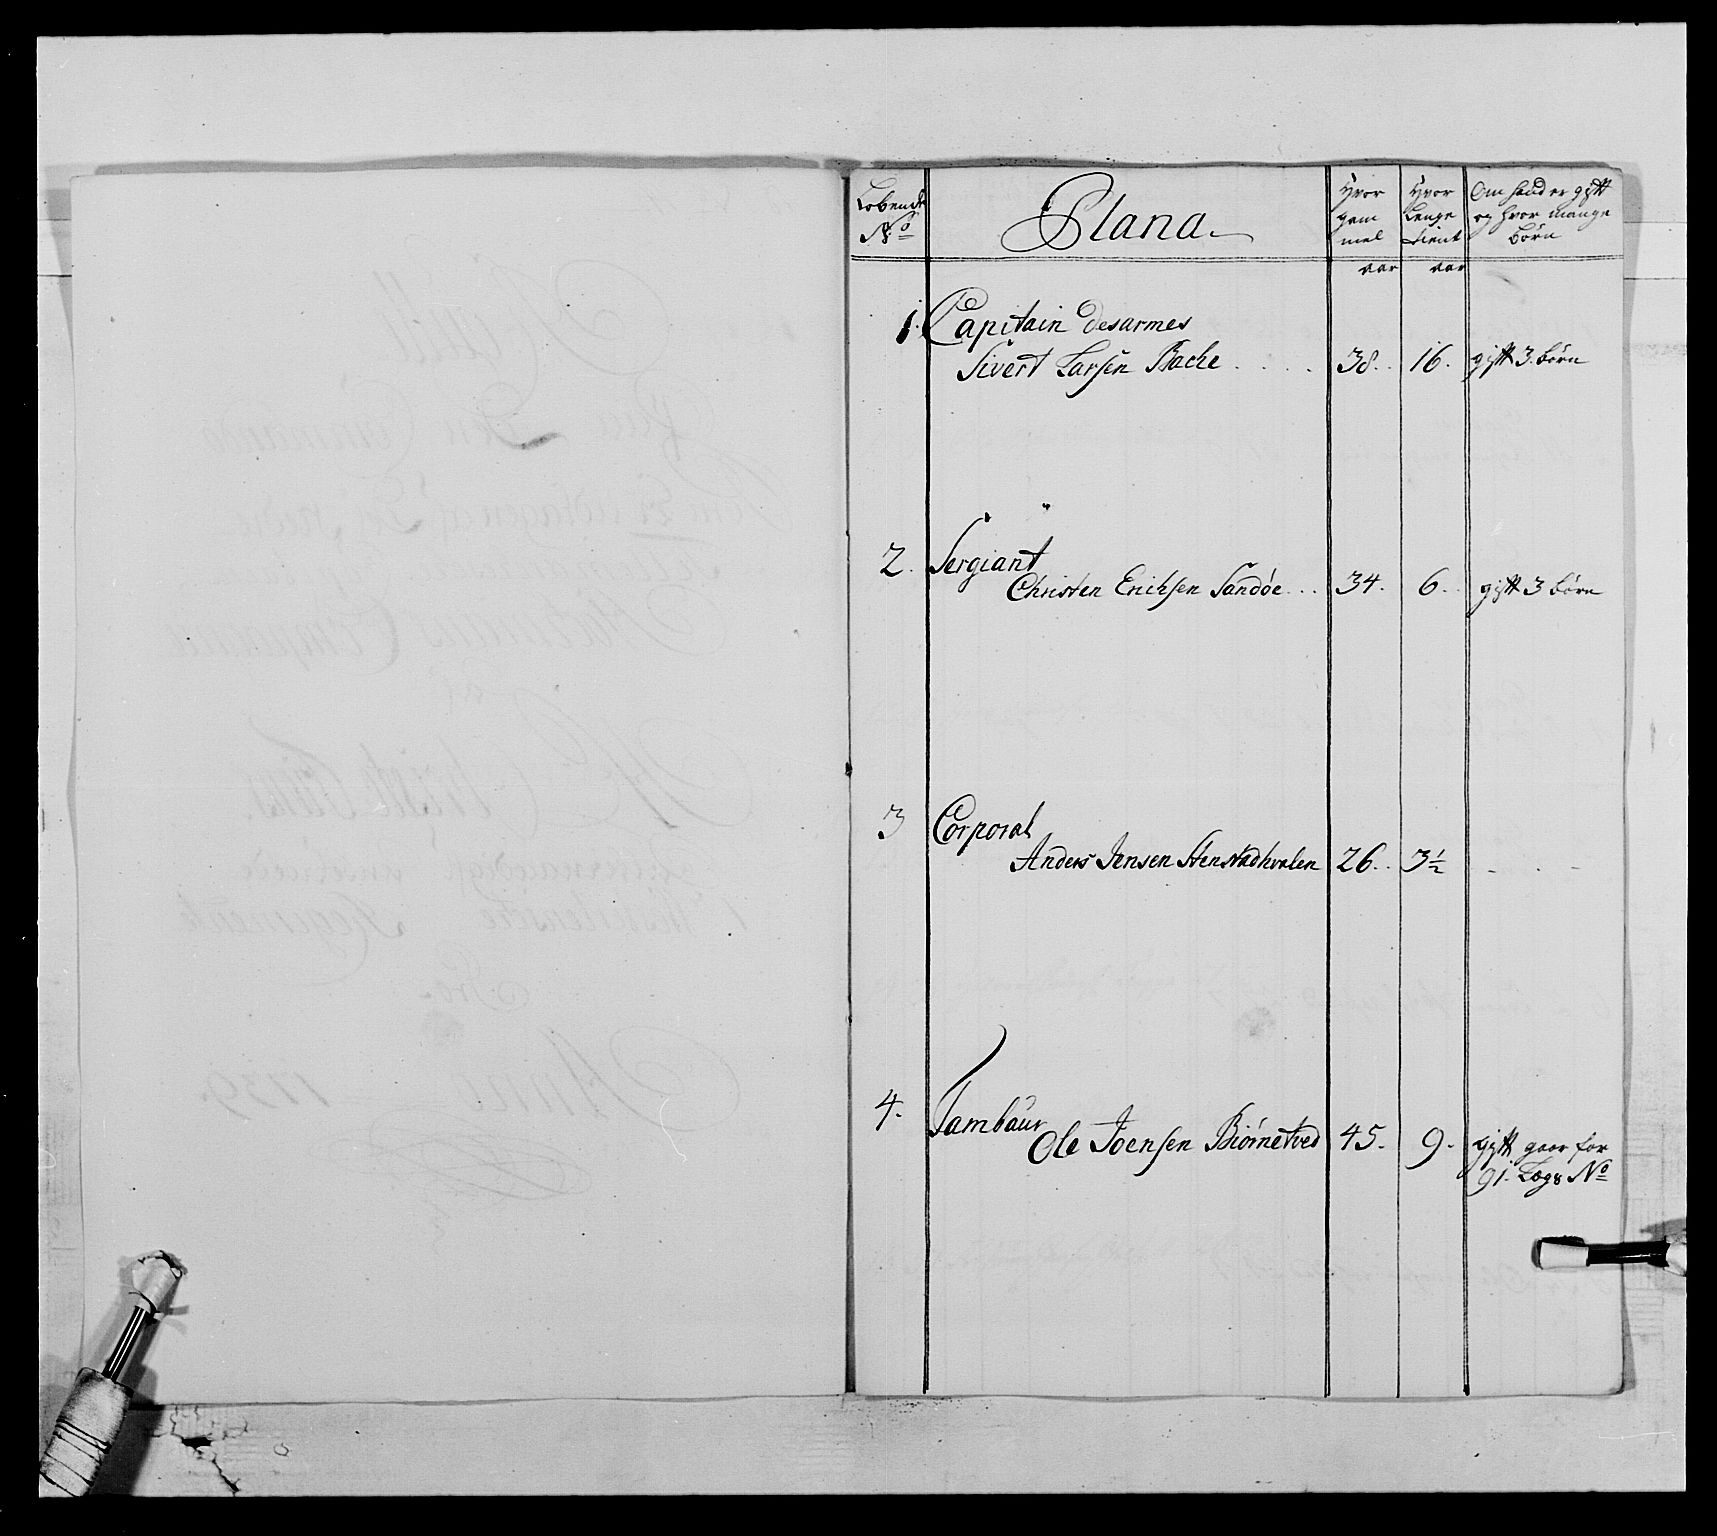 Lobende
No
Plana
Hvor
gam
mel
Hvor
Lenge
tient
Om hand er gift
og hvor mange
børn
aar
aar
1. Capitain desarmes
Sivert Larsen Bache . . . . 38. 16. gift 3. børn
2. Sergiant
Christen Erichsen Sandøe . . . 34. 6. gift 3 børn
3 Corporal
Anders Jensen Stenstadhvalen 26. 3½ - - -
4. Tambaur
Ole Joensen Biørnetved 45. 9. gift gaar for
91. Lægs No